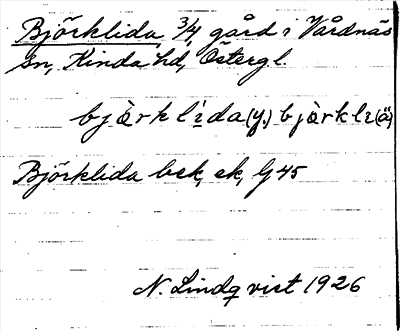 Björklida 3/4 gård i Vårdnäs
sn, Kinda hd, Östergl.
bjӛ̀rklída (y.) bjӛ̀rklɩ (ä)
Björklida bek, ek, G 45
N. Lindqvist 1926